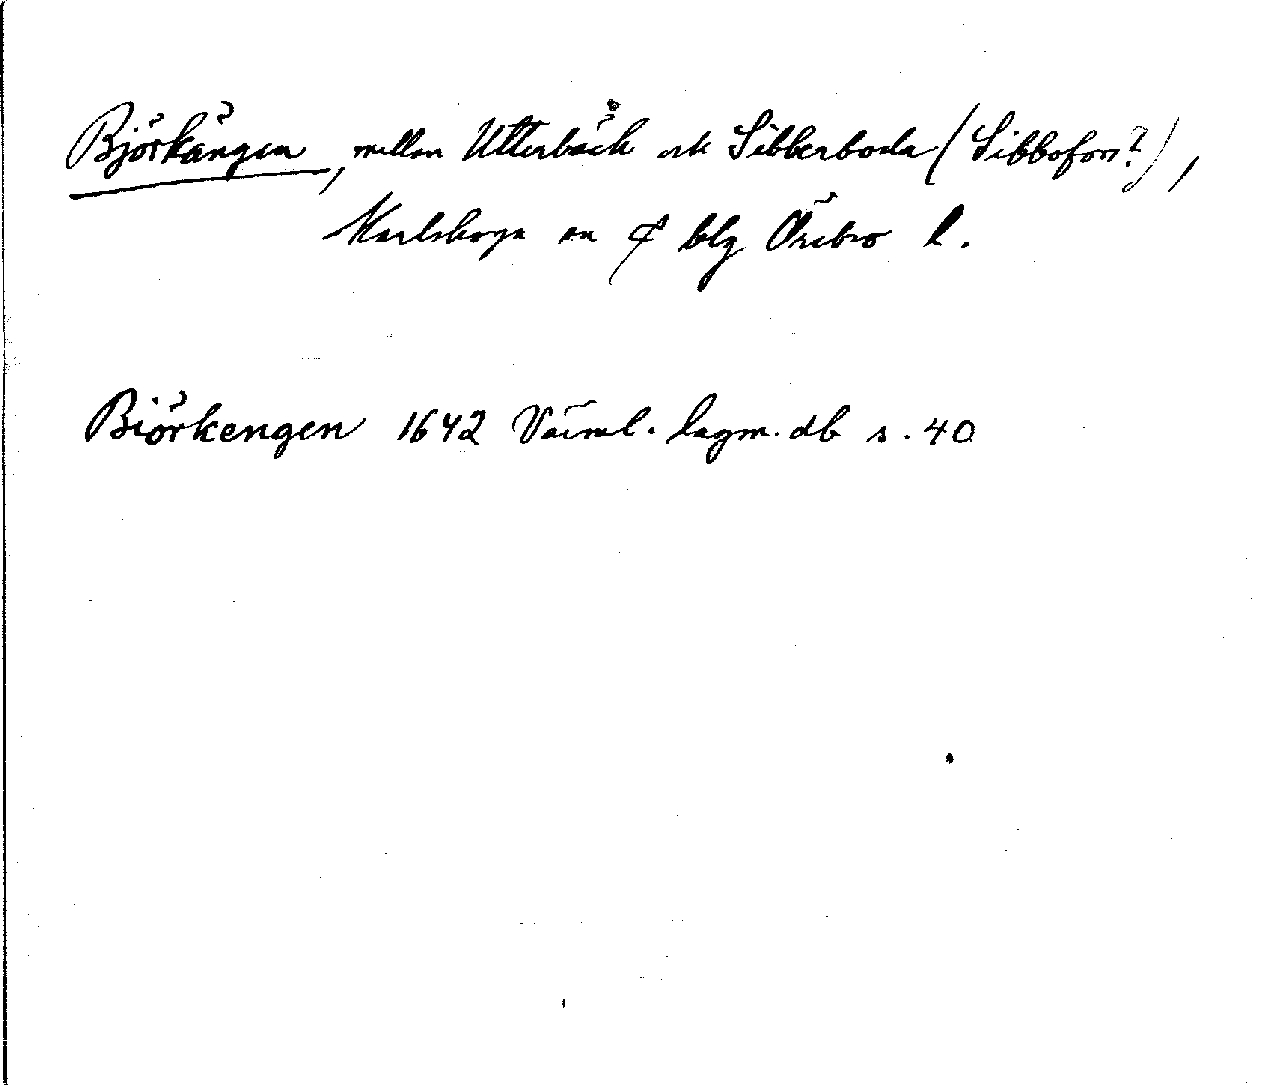 Björkängen, mellan Utterbäck och Sibberboda (Sibbofors?),
Karlskoga sn ¢ blg Örebro l.
Biörkengen 1642 Värml. lagm. db s. 40